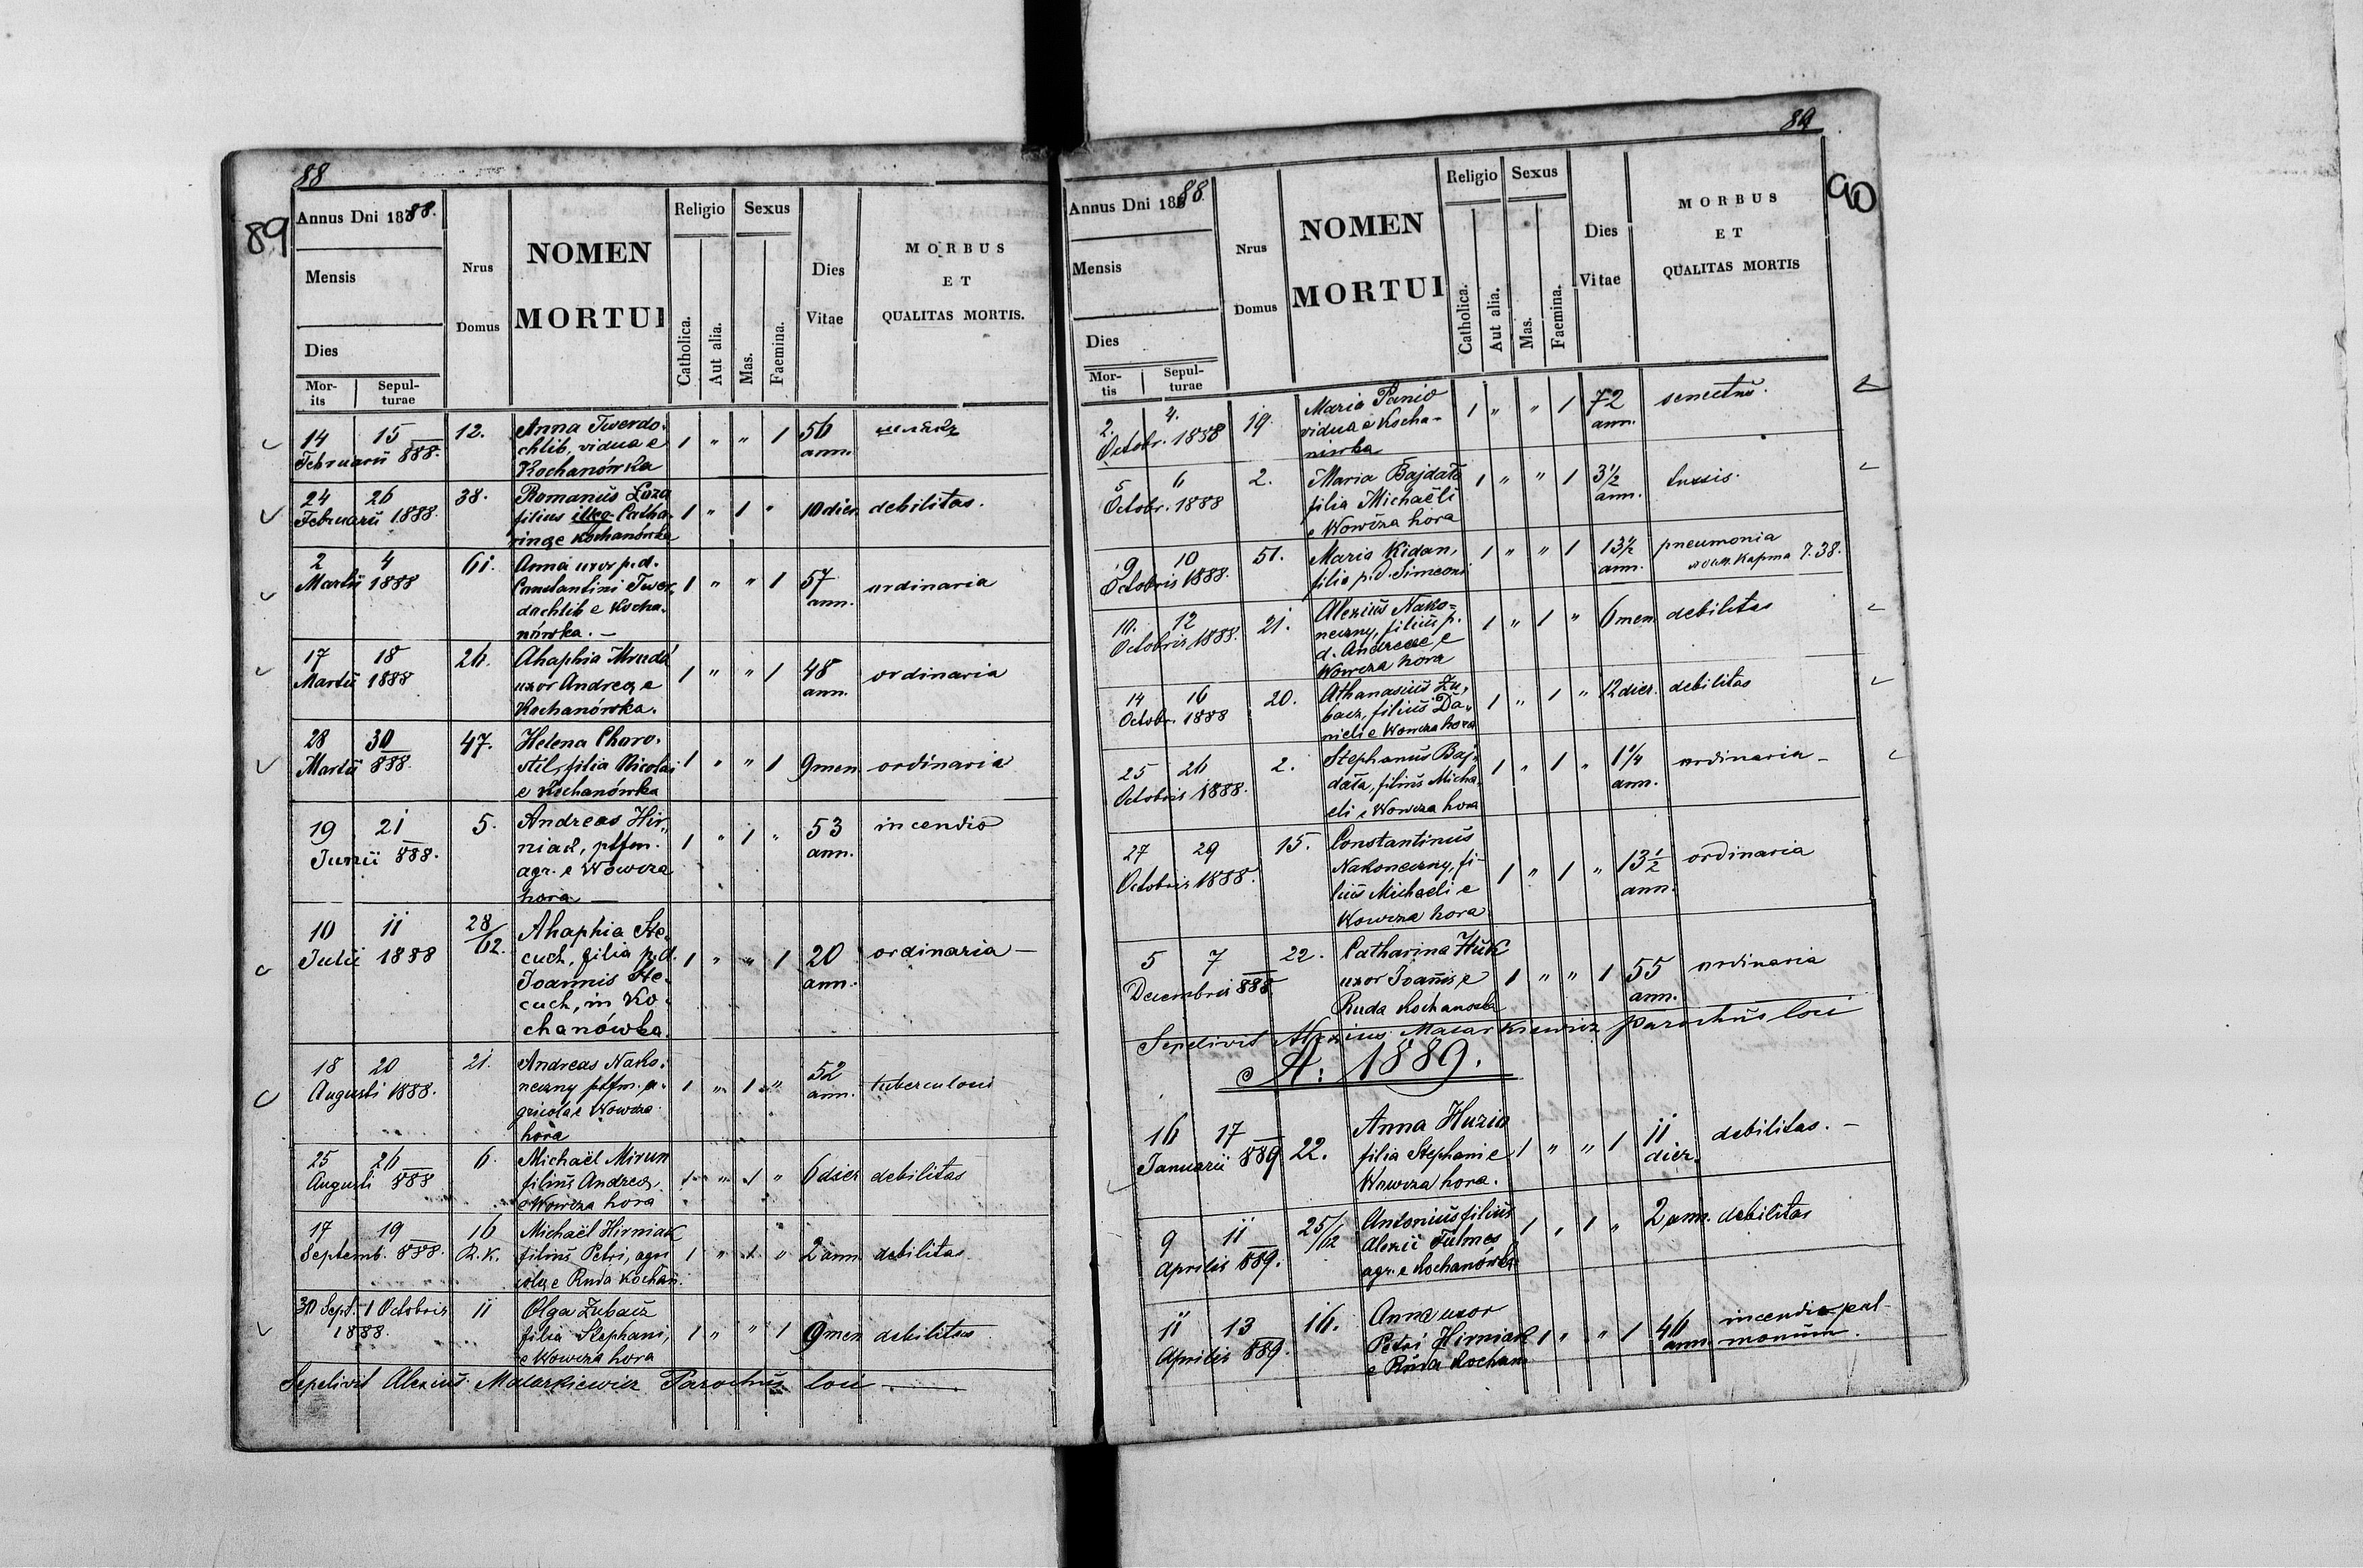 88
89
Annus Dni 1888.
Mensis
Dies
Mor-
its
Sepul-
turae
Nrus
Domus
NOMEN
MORTUI
Religio
Catholica.
Aut alia.
Sexus
Mas.
Faemina.
Dies
Vitae
MORBUS
ET
QUALITAS MORTIS.
14 15 12. Anna Twerdo- 1 " " 1 56
Februarii 888. chlib, vidua e ann.
Kochanówka
24 26 38. Romanus Łoza 1 " 1 " 10 dier. debilitas.
Februarii 1888. filius illeg. Catha-
rinae Kochanówka
2 4 61. Anna uxor p.d. 1 " " 1 57 ordinaria
Martii 1888 Constantini Twer- ann.
dochlib e Kocha-
nówka. —
17 18 26. Ahaphia Mruda 1 " " 1 48 ordinaria
Martii 1888 uxor Andreae e ann.
Kochanówka.
28 30 47. Helena Choro- 1 " " 1 9 men ordinaria
Martii 888. stil, filia Nicolai
e Kochanówka
19 21 5. Andreas Hir- 1 " 1 " 53 incendio
Junii 888. niak, ptfm. ann.
agr. e Wowcza
hora —
10 11 28/62. Ahaphia Ste- 1 " " 1 20 ordinaria —
Julii 1888 cuch, filia p.d. ann.
Joannis Ste-
cuch, in Ko-
chanówka.
18 20 21. Andreas Nako- 1 " 1 " 52 tuberculosi
Augusti 1888. neczny ptfm. a- ann.
gricola e Wowcza
hora
25 26 6. Michaël Mirun 1 " 1 " 6 dier debilitas
Augusti 888 filius Andreae
e Wowcza hora
17 19 16 Michaël Hirniak 1 " 1 " 2 ann. debilitas
Septemb. 888. R. K. filius Petri, agri
colae e Ruda Kochan.
30 Sept. 1 Octobris 11 Olga Zubacz 1 " " 1 9 men debilitas
1888. filia Stephani,
e Wowcza hora
Sepelivit Alexius Macarkiewicz Parochus loci —
89
90
Annus Dni 1888.
Mensis
Dies
Mor-
tis
Sepul-
turae
Nrus
Domus
NOMEN
MORTUI
Religio
Catholica.
Aut alia.
Sexus
Mas.
Faemina.
Dies
Vitae
MORBUS
ET
QUALITAS MORTIS
2. 4. 19. Maria Panio 1 " " 1 72
Octobr. 1888 vidua e Kocha- ann.
nówka
5 6 2. Maria Bajdała 1 " " 1 3½ tussis.
Octobr. 1888 filia Michaëli ann.
e Wowcza hora
9 10 51. Maria Kidan, 1 " " 1 13½ pneumonia
Octobris 1888. filia p.d. Simeoni ann. Карта 7.38.
10. 12 21. Alexius Nako- 1 " 1 " 6 men debilitas
Octobris 1888. neczny, filius p.
d. Andreae e
Wowcza hora
14 16 20. Athanasius Zu- 1 " 1 " 12 dier. debilitas
Octobr. 1888 bacz, filius Da-
nieli e Wowcza hora
25 26 2. Stephanus Baj- 1 " 1 " 1¼ ordinaria —
Octobris 1888. dała, filius Micha- ann.
eli e Wowcza hora
27 29 15. Constantinus 1 " 1 " 13½ ordinaria
Octobris 1888. Nakoneczny, fi- ann.
lius Michaeli e
Wowcza hora
5 7 22. Catharina Huk 1 " " 1 55 ordinaria
Decembris 888 uxor Joannis, e ann.
Ruda Kochanowska
Sepelivit Alexius Macarkiewicz parochus loci
A. 1889.
16 17 22. Anna Huzio 1 " " 1 11 debilitas. —
Januarii 889 filia Stephani e dier.
Wowcza hora.
9 11 25/62 Antonius filius 1 " 1 " 2 ann. debilitas
Aprilis 889. Alexii Tulmes
agr. e Kochanówka
11 13 16. Anna uxor 1 " " 1 46 incendio pul-
Aprilis 889. Petri Hirniak ann. monum.
e Ruda Kochan.